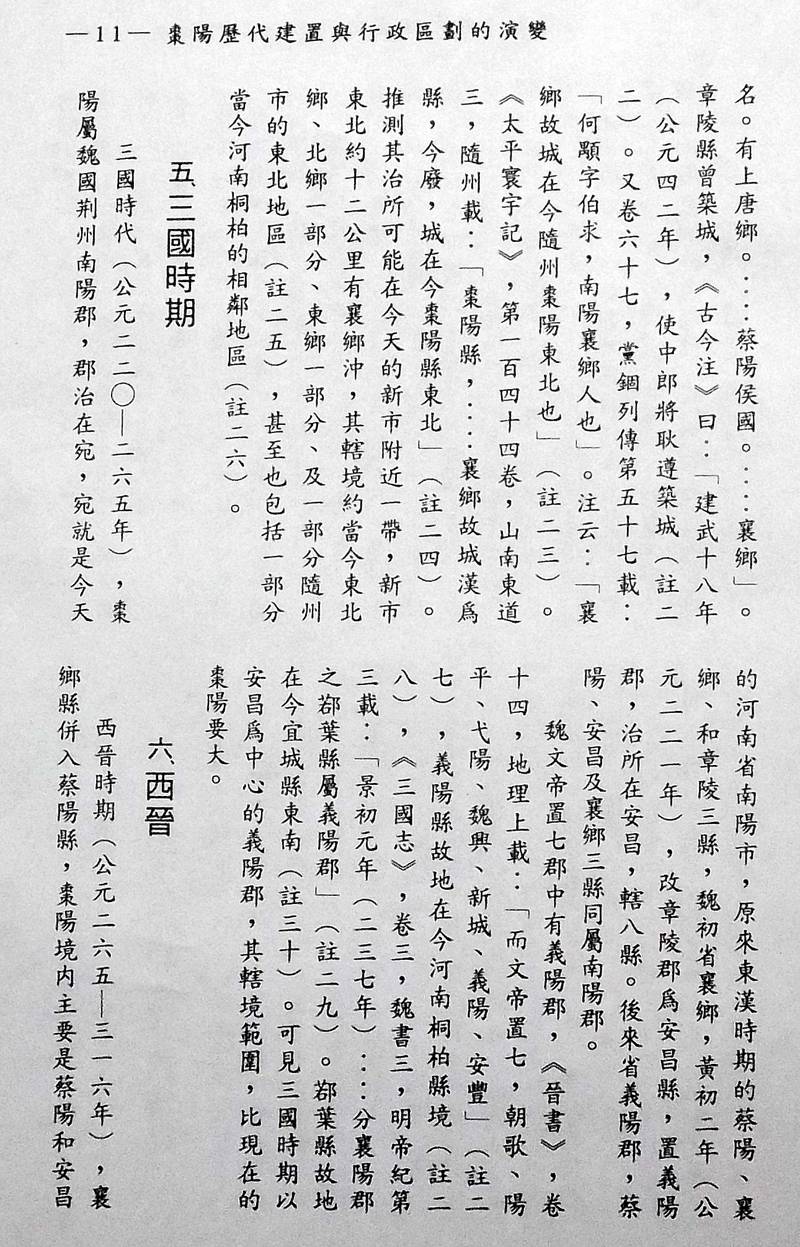 —11— 棗陽歷代建置與行政區劃的演變
名。有上唐鄉。……蔡陽侯國。……襄鄉」。
章陵縣曾築城，《古今注》曰：「建武十八年
（公元四二年），使中郎將耿遵築城（註二
二）。又卷六十七，黨錮列傳第五十七載：
「何顒字伯求，南陽襄鄉人也」。注云：「襄
鄉故城在今隨州棗陽東北也」（註二三）。
《太平寰宇記》，第一百四十四卷，山南東道
三，隨州載：「棗陽縣，……襄鄉故城漢爲
縣，今廢，城在今棗陽縣東北」（註二四）。
推測其治所可能在今天的新市附近一帶，新市
東北約十二公里有襄鄉沖，其轄境約當今東北
鄉、北鄉一部分、東鄉一部分、及一部分隨州
市的東北地區（註二五），甚至也包括一部分
當今河南桐柏的相鄰地區（註二六）。
五、三國時期
三國時代（公元二二〇—二六五年），棗
陽屬魏國荆州南陽郡，郡治在宛，宛就是今天
的河南省南陽市，原來東漢時期的蔡陽、襄
鄉、和章陵三縣，魏初省襄鄉，黃初二年（公
元二二一年），改章陵郡爲安昌縣，置義陽
郡，治所在安昌，轄八縣。後來省義陽郡，蔡
陽、安昌及襄鄉三縣同屬南陽郡。
魏文帝置七郡中有義陽郡，《晉書》，卷
十四，地理上載：「而文帝置七，朝歌、陽
平、弋陽、魏興、新城、義陽、安豐」（註二
七），義陽縣故地在今河南桐柏縣境（註二
八），《三國志》，卷三，魏書三，明帝紀第
三載：「景初元年（二三七年）……分襄陽郡
之鄀葉縣屬義陽郡」（註二九）。鄀葉縣故地
在今宜城縣東南（註三十）。可見三國時期以
安昌爲中心的義陽郡，其轄境範圍，比現在的
棗陽要大。
六、西晉
西晉時期（公元二六五—三一六年），襄
鄉縣併入蔡陽縣，棗陽境內主要是蔡陽和安昌